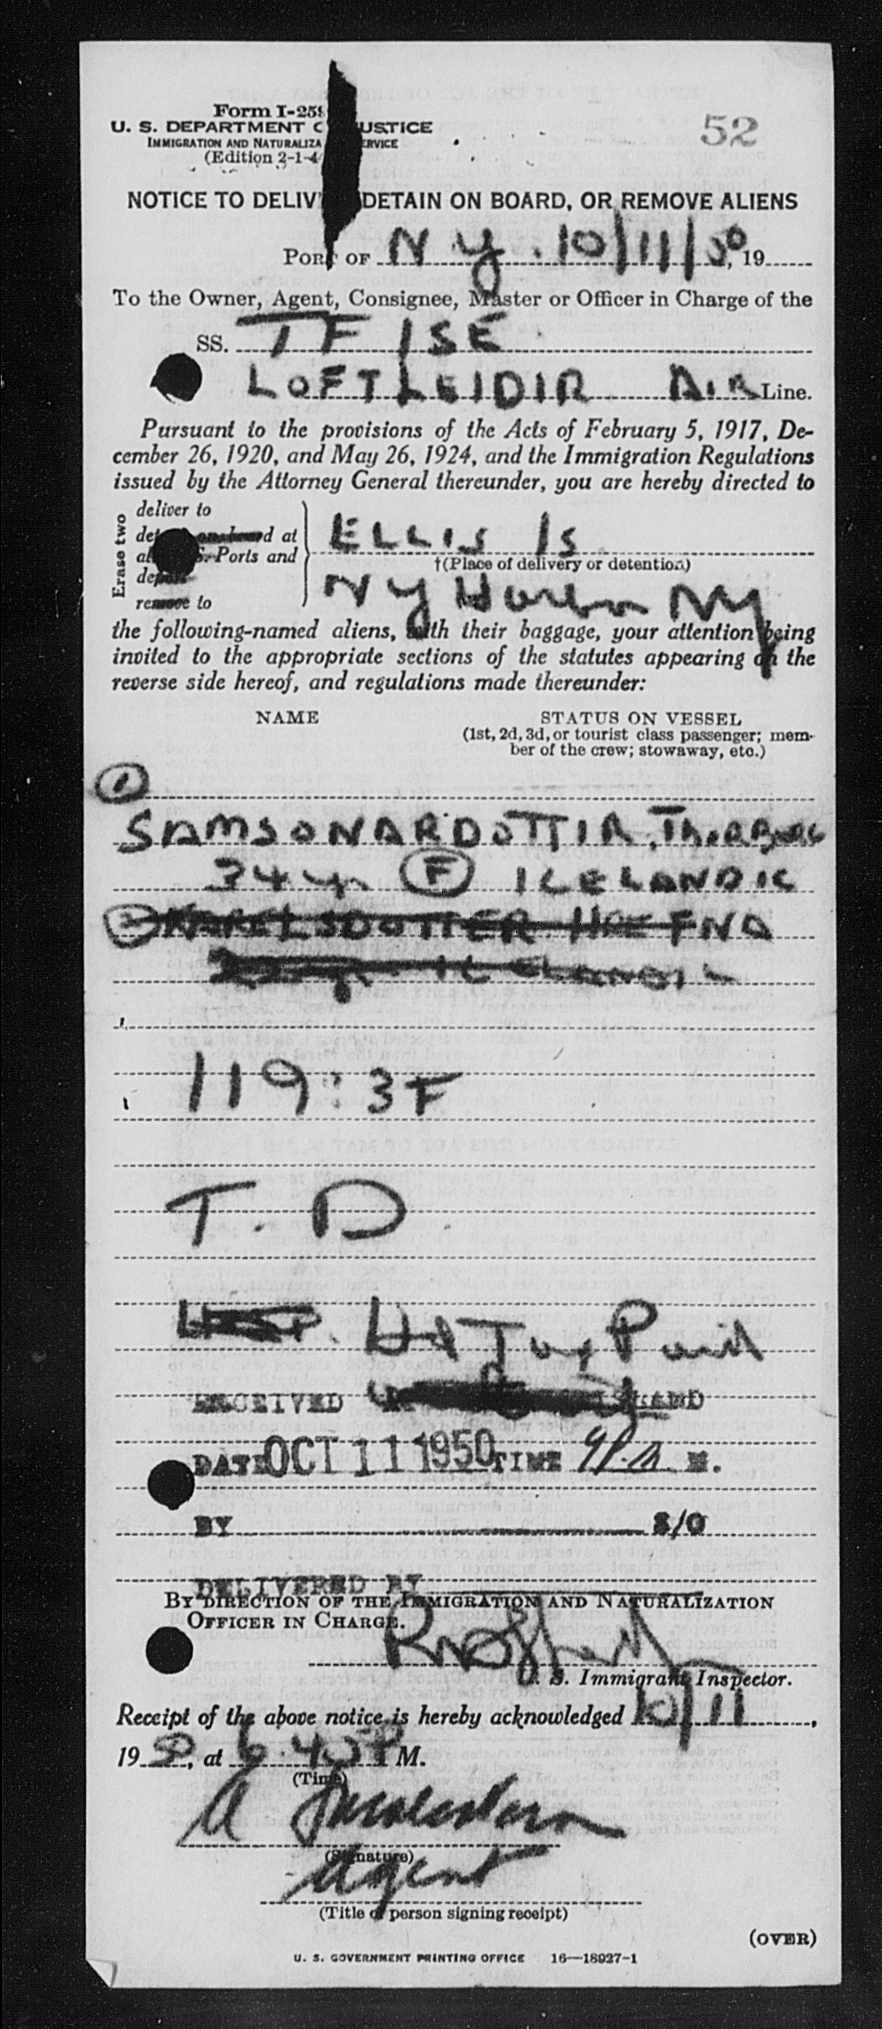 Form I-259
52
U. S. DEPARTMENT O JUSTICE
IMMIGRATION AND NATURALIZA SERVICE
(Edition 2-1-4
NOTICE TO DELIV DETAIN ON BOARD, OR REMOVE ALIENS
PORT OF N Y. 10/11/50, 19
To the Owner, Agent, Consignee, Master or Officer in Charge of the
SS. TF ISE
LOFTLEIDIR AIR Line.
Pursuant to the provisions of the Acts of February 5, 1917, De-
cember 26, 1920, and May 26, 1924, and the Immigration Regulations
issued by the Attorney General thereunder, you are hereby directed to
Erase two
deliver to
at
Ports and
remove to
ELLIS Is
†(Place of delivery or detention)
NY Harbor NY
the following-named aliens, with their baggage, your attention being
invited to the appropriate sections of the statutes appearing on the
reverse side hereof, and regulations made thereunder:
NAME
STATUS ON VESSEL
(1st, 2d, 3d, or tourist class passenger; mem-
ber of the crew; stowaway, etc.)
1
SAMSONARDOTTIR, THORBORG
34 yr F ICELANDIC
2 KARELSDOTTER
ICELANDIC
119:3F
T. D.
Hd Tax Paid
RECEIVED ISLAND
DATE OCT 11 1950 TIME 9 P.M. M.
BY S/O
DELIVERED BY
BY DIRECTION OF THE IMMIGRATION AND NATURALIZATION
OFFICER IN CHARGE.
U. S. Immigrant Inspector.
Receipt of the above notice is hereby acknowledged 10/11,
19 50, at 6:45 P M.
(Time)
A
(Signature)
Agent
(Title of person signing receipt)
(OVER)
U. S. GOVERNMENT PRINTING OFFICE 16—18927-1